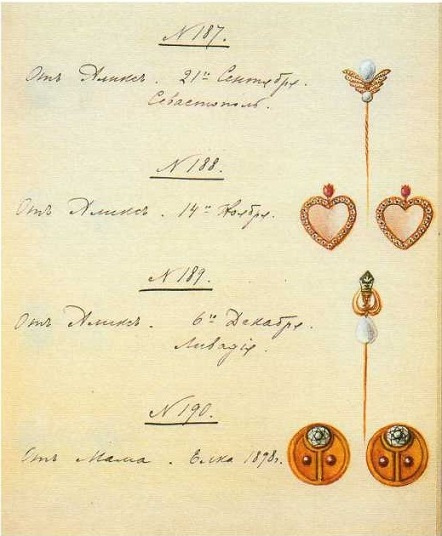 N 187.
Отъ Аликсъ. 21го Сентября.
Севастополь.
N 188.
Отъ Аликсъ. 14го Ноября.
N 189.
Отъ Аликсъ. 6го Декабря.
Ливадія.
N 190.
Отъ Мама. Елка 1898 г.